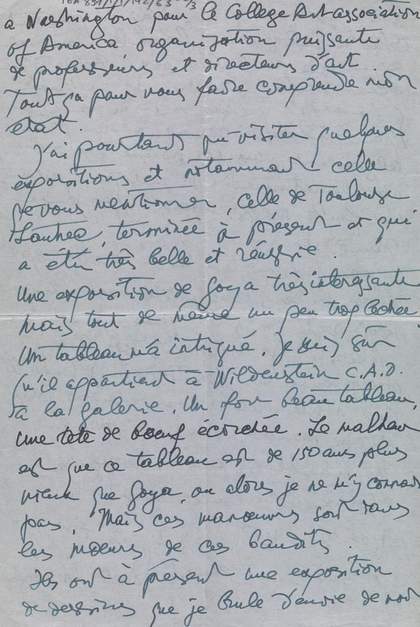 a Washington pour le College Art association
of America organisation puissante
de professeurs et directeurs d'art.
Tout ça pour vous faire comprendre mon
état.
J'ai pourtant pu visiter quelques
expositions et notamment celle
que vous mentionner, celle de Toulouse
Lautrec, terminée à présent et qui
a été très belle et réussie.
Une exposition de Goya très interessante
mais tout de même un peu trop
Un tableau m'a intrigué. Je suis sûr
qu'il appartient à Wildenstein C.A.D.
à la galerie. Un fort beau tableau,
une tête de boeuf écorchée. Le malheur
est que ce tableau est de 150 ans plus
vieux que Goya, ou alors je ne m'y connais
pas. Mais ces manoeuvres sont dans
les moeurs de ces bandits.
Ils ont à présent une exposition
de dessins que je brule d'envie de voir